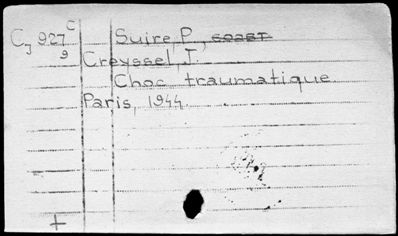 C, 927 c Suire, P.,
9 Creyssel, J.
Choc traumatique.
Paris, 1944.
+